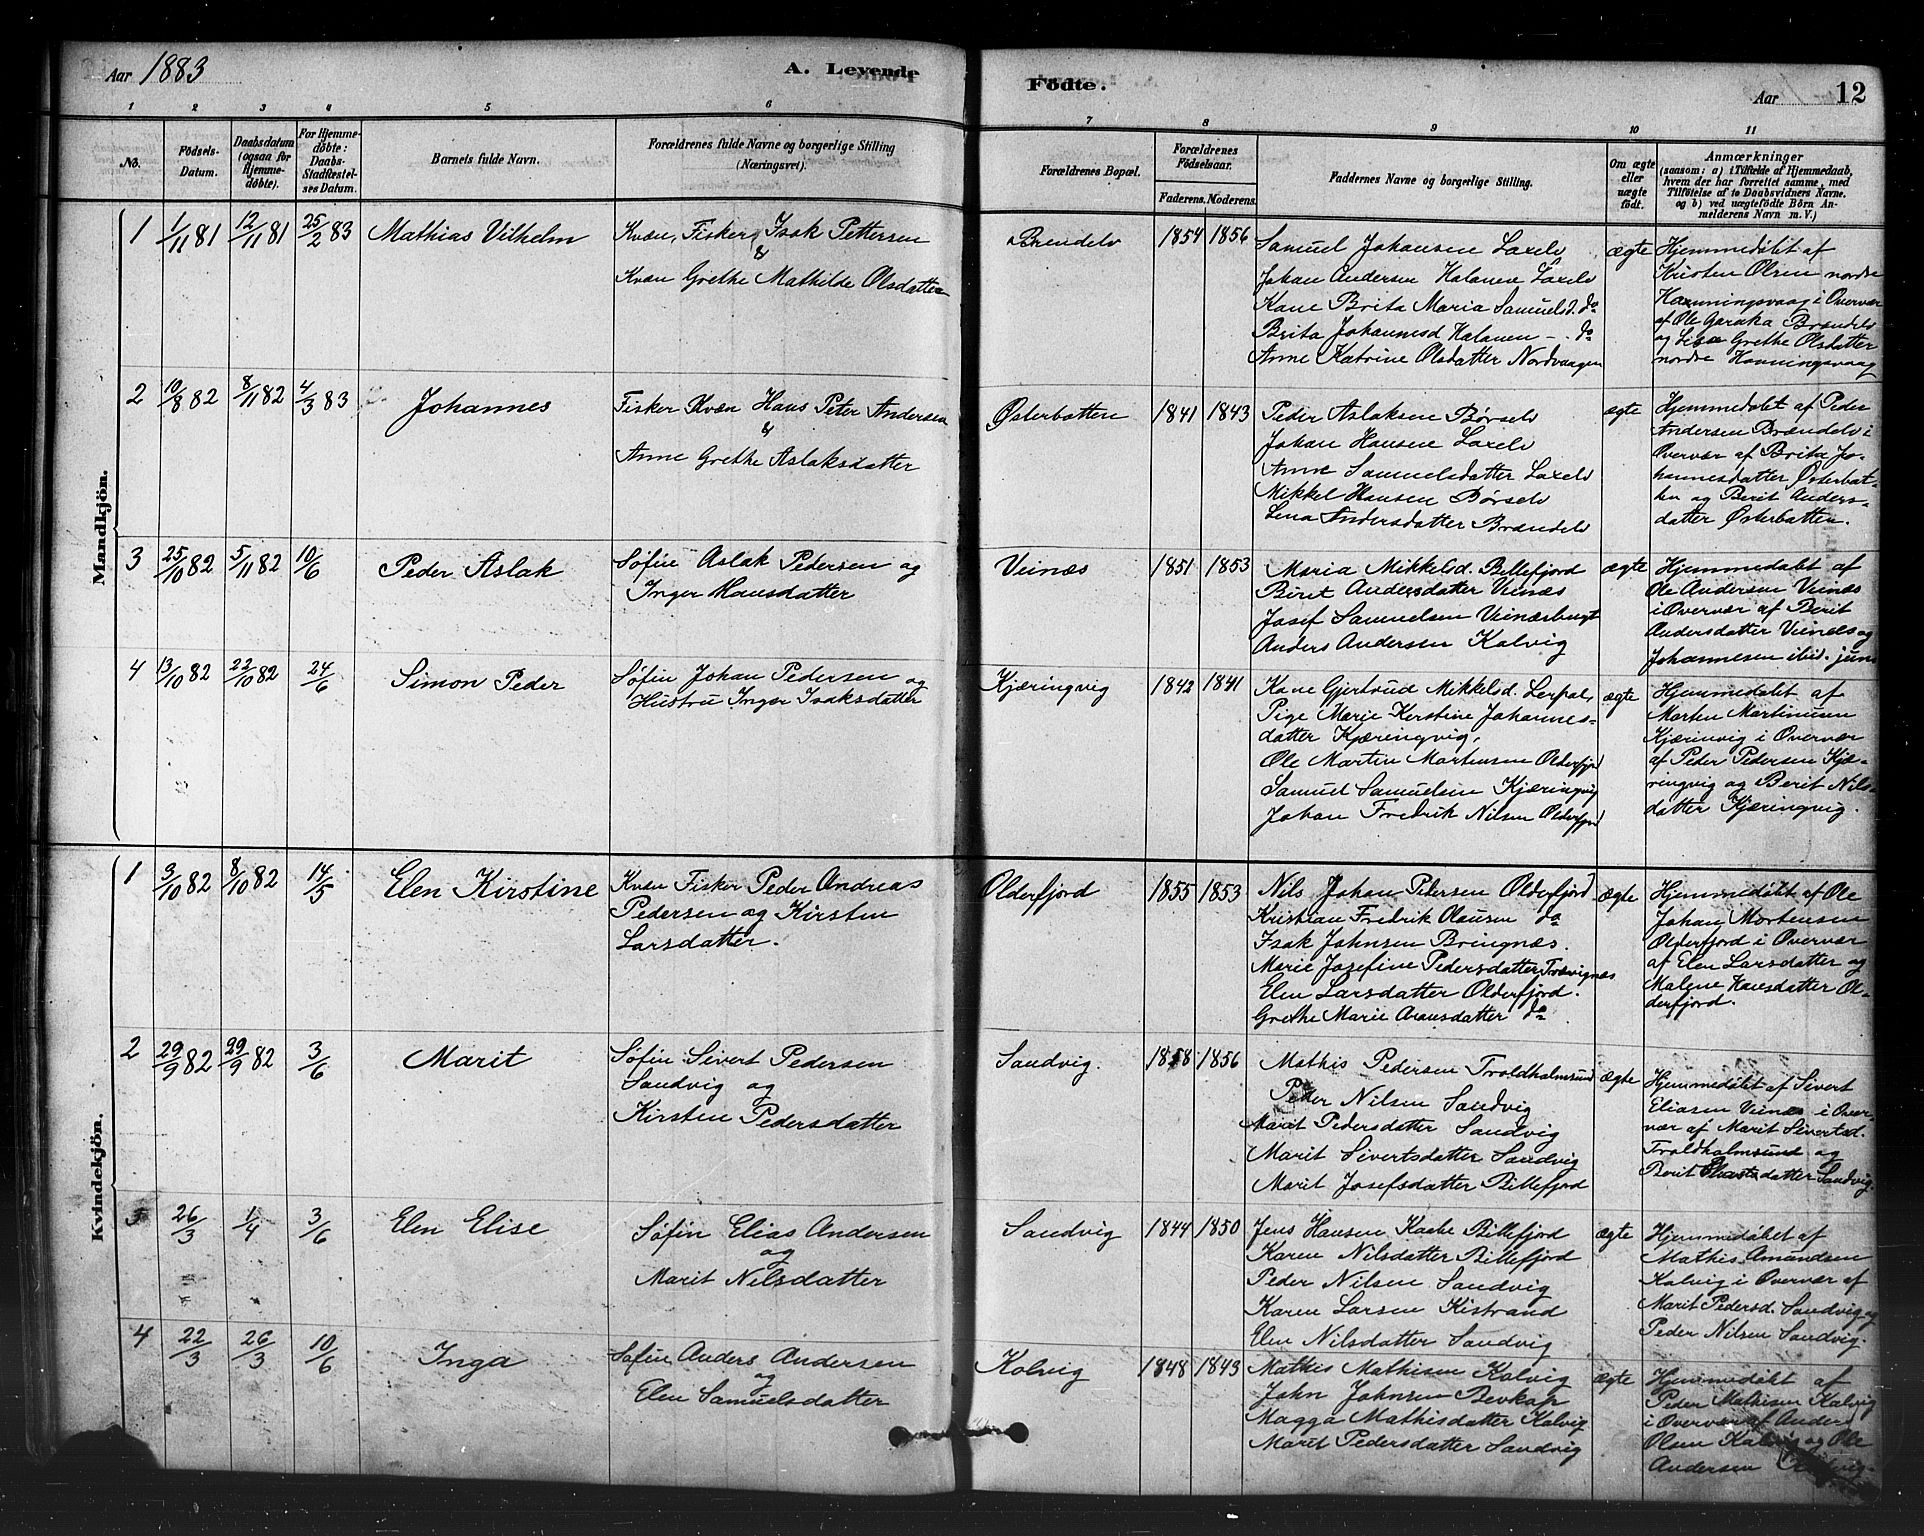 Aar 1883
A. Levende
Födte.
Aar
12
1 2 3 4 5 6
7 8 9 10 11
No.
Födsels-
Datum.
Daabsdatum
(ogsaa for
Hjemme-
döbte).
For Hjemme-
döbte:
Daabs-
Stadfæstel-
ses Datum.
Barnets fulde Navn.
Forældrenes fulde Navne og borgerlige Stilling
(Næringsvei).
Forældrenes Bopæl.
Forældrenes
Födselsaar.
Faderens. Moderens.
Faddernes Navne og borgerlige Stilling.
Om ægte
eller
uægte
födt.
Anmærkninger
(saasom: a) i Tilfælde af Hjemmedaab,
hvem der har forrettet samme, med
Tilföielse af to Daabsvidners Navne.
og b) ved uægtefödte Börn An-
melderens Navn m. V.)
Mandkjön.
1 1/11 81 12/11 81 25/2 83 Mathias Vilhelm
Kvæn, Fisker Isak Pettersen
&
Kvæn Grethe Mathilde Olsdatter
Brendelv 1854 1856
Samuel Johansen Laxelv
Johan Andersen Halonen Laxelv
Kone Brita Maria Samuelsd. do
Brita Johannesd Halonen - . do
Anne Katrine Olsdatter Nordvaagen
ægte
Hjemmedøbt af
Kristen Olsen nordre
Honningsvaag i Overvær
af Ole Garaka Brændelv
og Lisa Grethe Olsdatter
nordre Honningsvaag
2 10/8 82 8/11 82 4/3 83 Johannes
Fisker Kvæn Hans Peter Andersen
&
Anne Grethe Aslaksdatter
Østerbotten 1841 1843
Peder Aslaksen Børselv
Johan Hansen Laxelv
Anne Samuelsdatter Laxelv
Mikkel Hansen Børselv
Lena Andersdatter Brændelv
ægte
Hjemmedøbt af Peder
Andersen Brændelv i
Overvær af Brita Jo-
hannesdatter Østerbot-
ten og Berit Anders-
datter Østerbotten.
3 25/10 82 5/11 82 10/6 Peder Aslak
Søfin Aslak Pedersen og
Inger Hansdatter
Veinæs 1851 1853
Maria Mikkelsd. Billefjord
Beret Andersdatter Veinæs
Josef Samuelsen Veinæsbugt
Anders Andersen Kolvig
ægte
Hjemmedøbt af
Ole Andersen Veinæs
i Overvær af Berit
Andersdatter Veinæs og
Johannesen ibid. jun.
4 13/10 82 22/10 82 24/6 Simon Peder
Søfin Johan Pedersen og
Hustru Inger Isaksdatter
Kjæringvig 1842 1841
Kone Gjertrud Mikkelsd. Lerpol,
Pige Marie Kerstine Johannes-
datter Kjæringvig,
Ole Martin Mortensen Olderfjord
Samuel Samuelsen Kjæringvig
Johan Fredrik Nilsen Olderfjord
ægte
Hjemmedøbt af
Morten Martinusen
Kjærinvig i Overvær
af Peder Pedersen Kjæ-
ringvig og Berit Nils-
datter Kjæringvig.
Kvindekjön.
1 3/10 82 8/10 82 14/5 Elen Kirstine
Kvæn Fisker Peder Andreas
Pedersen og Kirsten
Larsdatter.
Olderfjord 1855 1853
Nils Johan Petersen Olderfjord
Kristian Fredrik Olausen do
Isak Johnsen Bringnæs.
Marie Josefine Pedersdatter
Elen Larsdatter Olderfjord.
Grethe Marie datter do
ægte
Hjemmedøbt af Ole
Johan Mortensen
Olderfjord i Overvær
af Elen Larsdatter og
Malene Hansdatter Ol-
derfjord.
2 29/9 82 29/9 82 3/6 Marit
Søfin Sivert Pedersen
Sandvig og
Kirsten Pedersdatter
Sandvig. 1858 1856
Mathis Pedersen Troldholmsund
Peder Nilsen Sandvig
Marit Pedersdatter Sandvig
Marit Sivertsdatter Sandvig
Marit Josefsdatter Billefjord
ægte
Hjemmedøbt af Sivert
Eliasen Veinæs i Over-
vær af Marit Sivertsd.
Troldholmsund og
Berit datter Sandvig.
3 26/3 1/4 3/6 Elen Elise
Søfin Elias Andersen
og
Marit Nilsdatter
Sandvig 1844 1850
Jens Hansen Billefjord
Karen Nilsdatter Billefjord
Peder Nilsen Sandvig
Karen Larsen Kistrand
Elen Nilsdatter Sandvig
ægte
Hjemmedøbt af
Mathis Amundsen
Kolvig i Overvær af
Marit Pedersd. Sandvig og
Peder Nilsen Sandvig.
4 22/3 26/3 10/6 Inga
Søfin Anders Andersen
og
Elen Samuelsdatter
Kolvig 1848 1843
Mathis Mathisen Kolvig
John Johnsen Bevkop
Magga Mathisdatter Kolvig
Marit Pedersdatter Sandvig
ægte
Hjemmedøbt af
Peder Mathisen Kolvig
i Overvær af Anders
Olsen Kolvig og Ole
Andersen